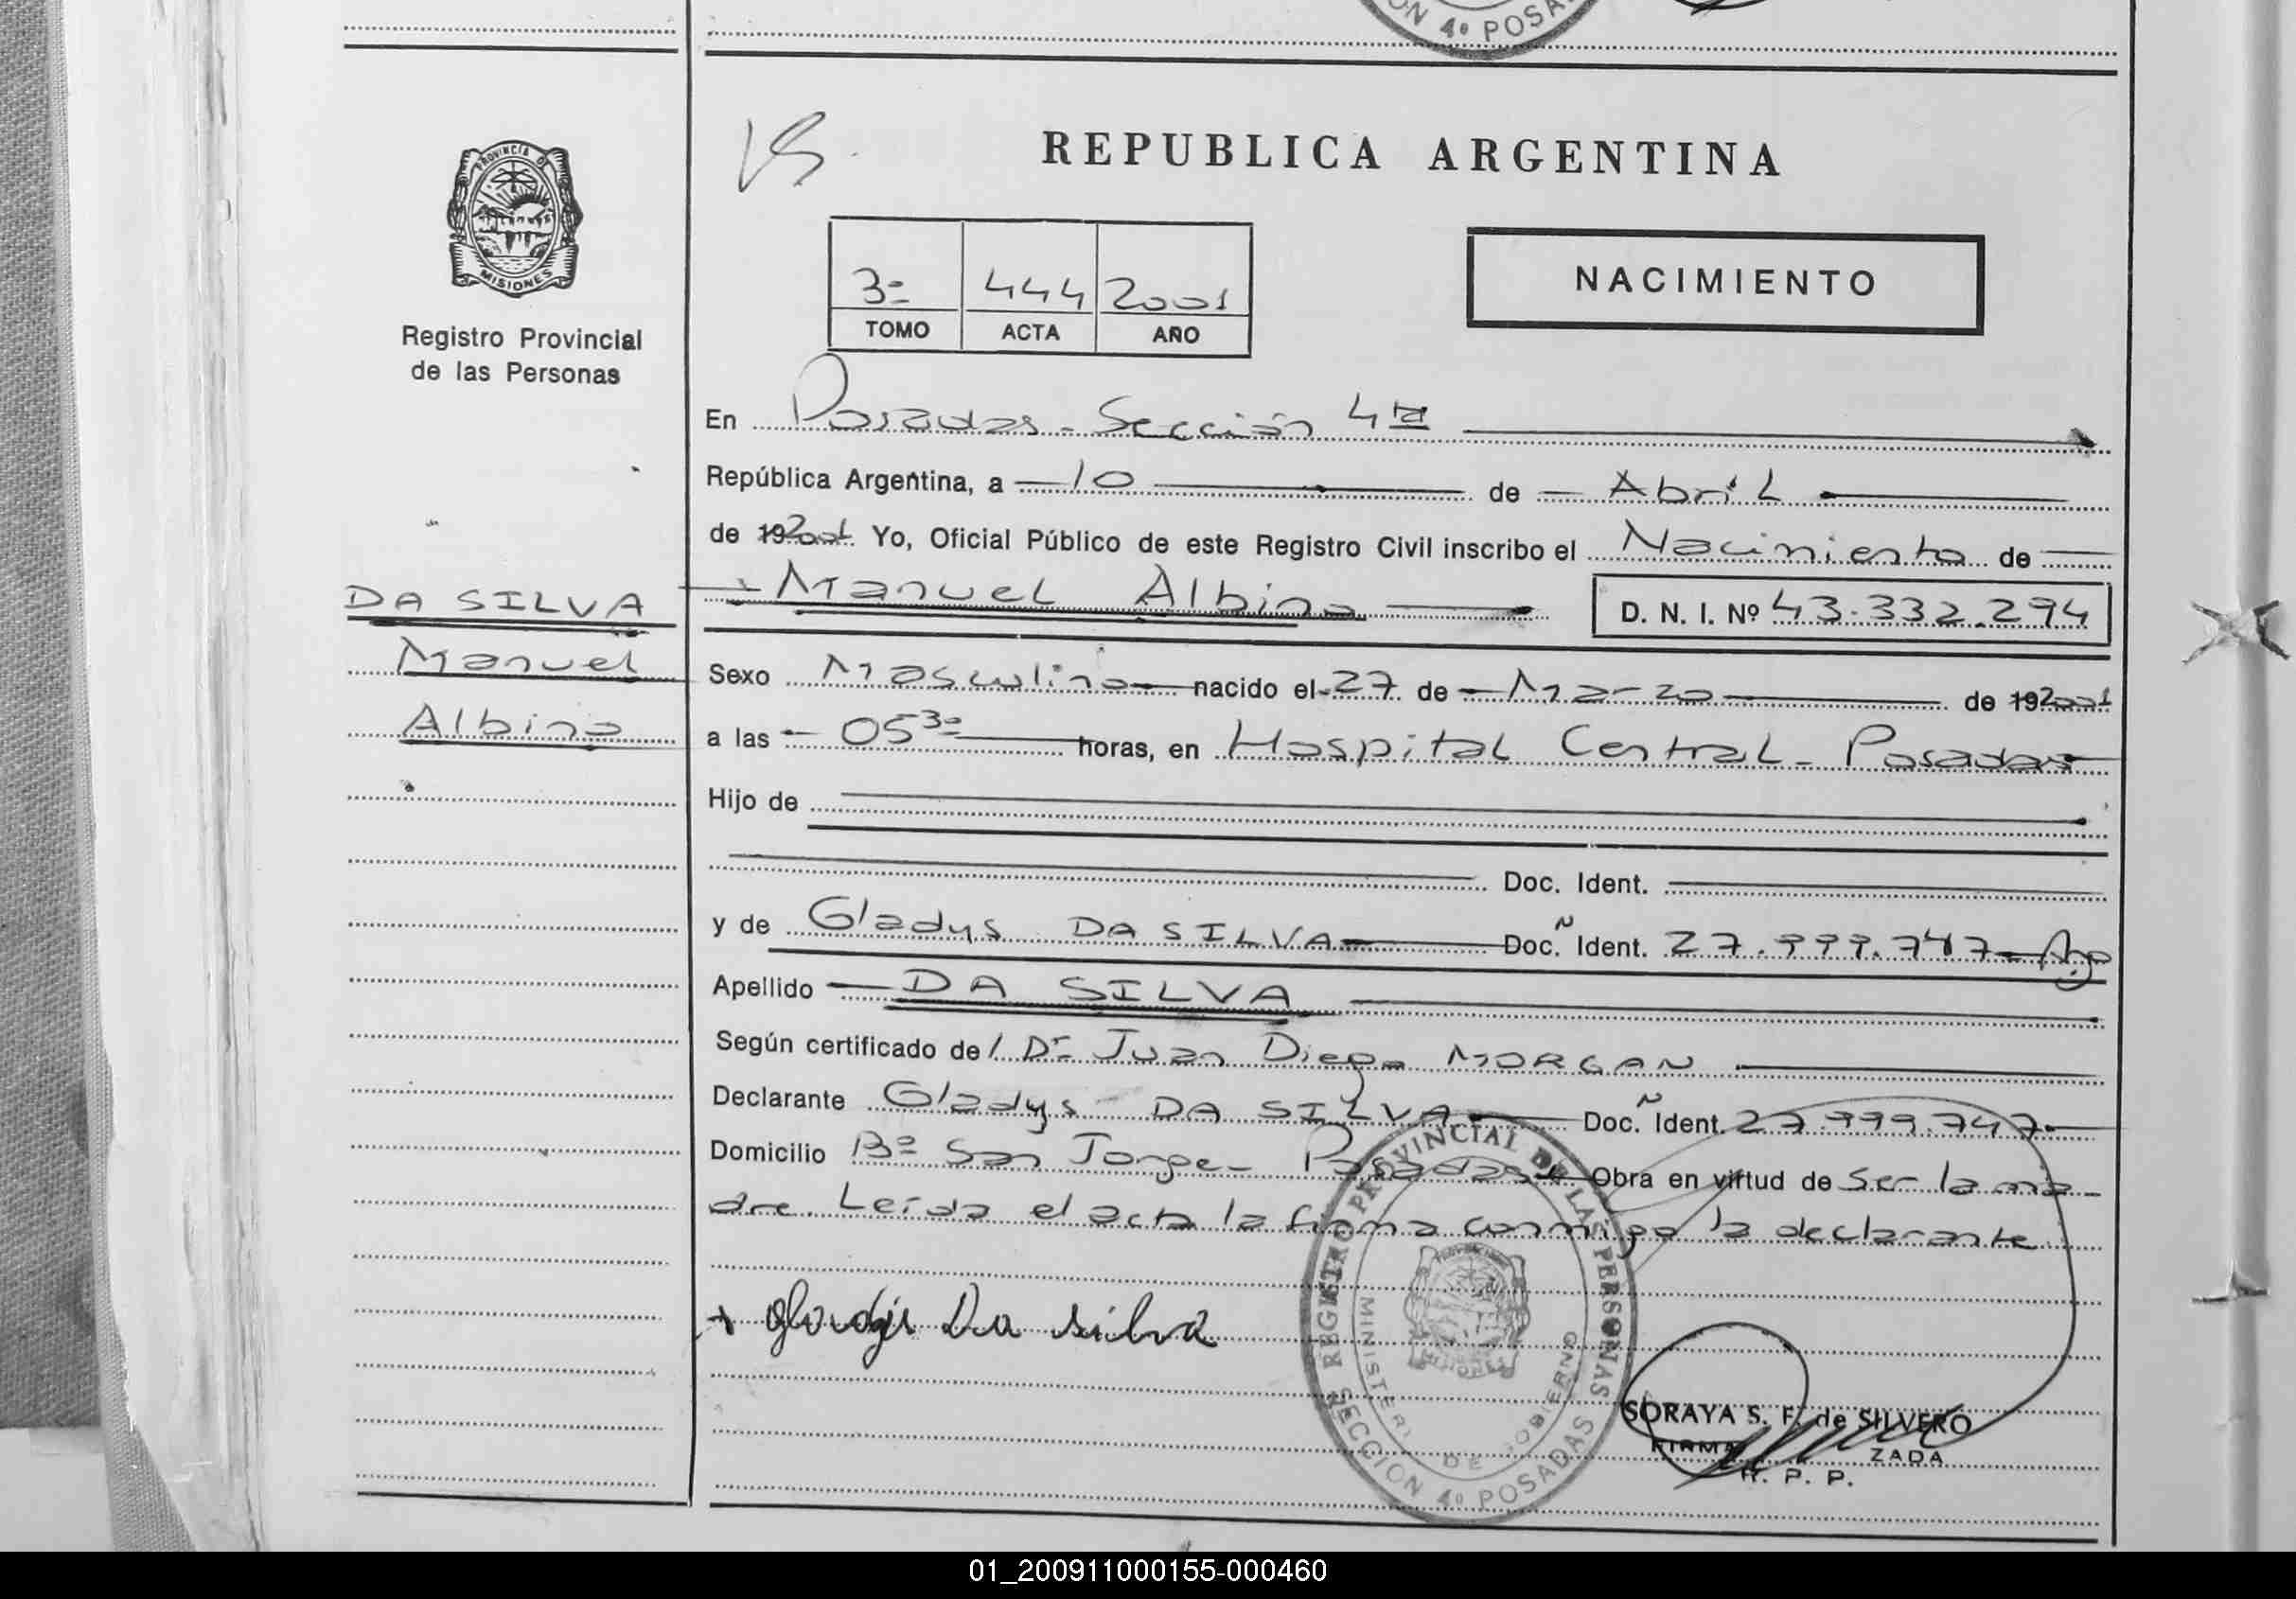 ON 4º POSA
PROVINCIA DE
MISIONES
Registro Provincial
de las Personas
DA SILVA
Manuel
Albino
REPUBLICA ARGENTINA
3º 444 2001
TOMO ACTA AÑO
NACIMIENTO
En Posadas - Sección 4ta
República Argentina, a 10 de Abril
de 192001 Yo, Oficial Público de este Registro Civil inscribo el Nacimiento de
Manuel Albino D. N. I. Nº 43.332.294
Sexo Masculino nacido el 27 de Marzo de 192001
a las 05³⁰ horas, en Hospital Central - Posadas
Hijo de
Doc. Ident.
y de Gladys DA SILVA Doc. Ident. 27.999.747 - Arg
Apellido DA SILVA
Según certificado de Dr Juan Diego MORGAN
Declarante Gladys DA SILVA Doc. Ident. 27.999.747.
Domicilio Bº San Jorge - Posadas Obra en virtud de Ser la ma-
dre. Leída el acta la firma conmigo la declarante
+ gladys Da silva
REGISTRO PROVINCIAL DE LAS PERSONAS
MINISTERI DE GOBIERNO
MISIONES
SECCION 4º POSADAS
SORAYA S. F. de SILVERO
FIRMA ZADA
R. P. P.
01_200911000155-000460